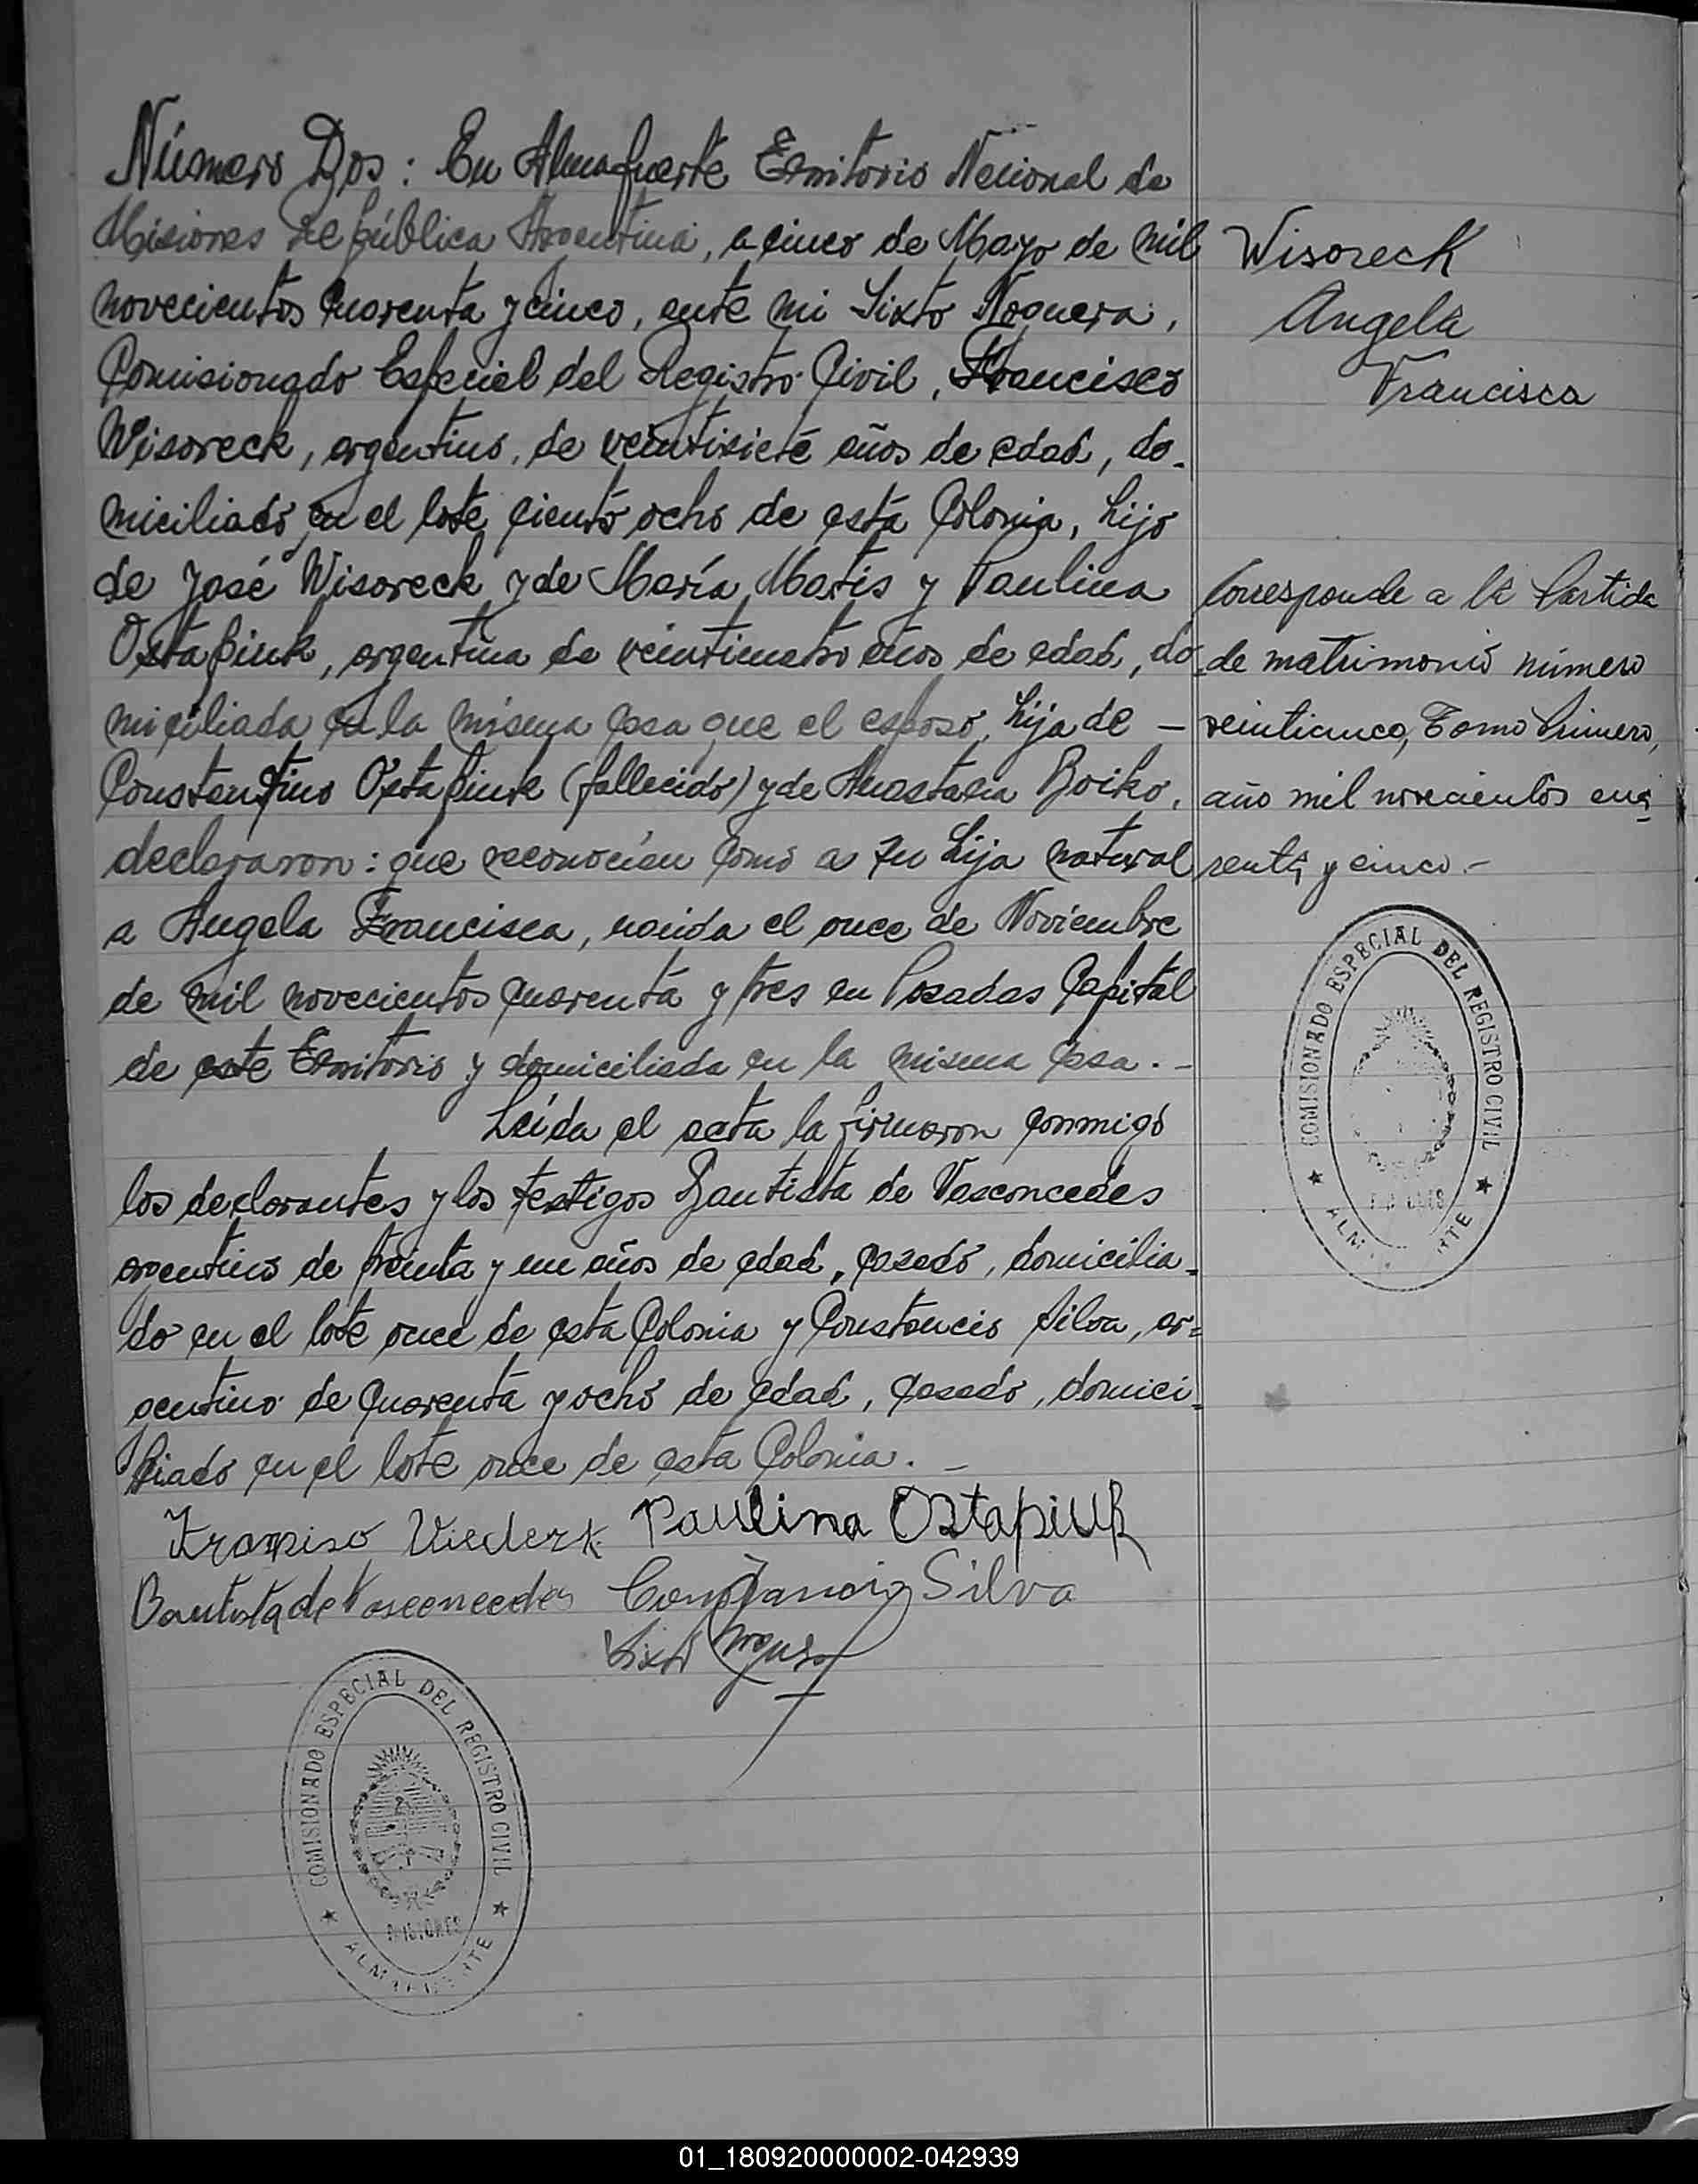 Número Dos: En Almafuerte Territorio Nacional de
Misiones República Argentina, a cinco de Mayo de mil
novecientos cuarenta y cinco, ante mi Sixto Noguera,
Comisionado Especial del Registro Civil, Francisco
Wisoreck, argentino, de veintisiete años de edad, do-
miciliado en el lote ciento ocho de esta Colonia, hijo
de José Wisoreck y de María Matis y Paulina
Ostapiuk, argentina de veinticuatro años de edad, do-
miciliada en la misma casa que el esposo, hija de —
Constantino Ostapiuk (fallecido) y de Anastacia Boiko,
declararon: que reconocían como a su hija natural
a Angela Francisca, nacida el once de Noviembre
de mil novecientos cuarenta y tres en Posadas Capital
de este Territorio y domiciliada en la misma casa. -
Leída el acta la firmaron conmigo
los declarantes y los testigos Bautista de Vasconcedes
argentino de treinta y un años de edad, casado, domicilia-
do en el lote once de esta Colonia y Constancio Silva, ar=
gentino de cuarenta y ocho de edad, casado, domici-
liado en el lote once de esta Colonia. -
Paulina Ostapiuk
Bautista de Constancio Silva
Sixto
COMISIONADO ESPECIAL DEL REGISTRO CIVIL
MISIONES
Wisoreck
Angela
Francisca
Corresponde a la Partida
de matrimonio número
veinticinco, Tomo Primero,
año mil novecientos cua-
renta y cinco.-
COMISIONADO ESPECIAL DEL REGISTRO CIVIL
01_180920000002-042939